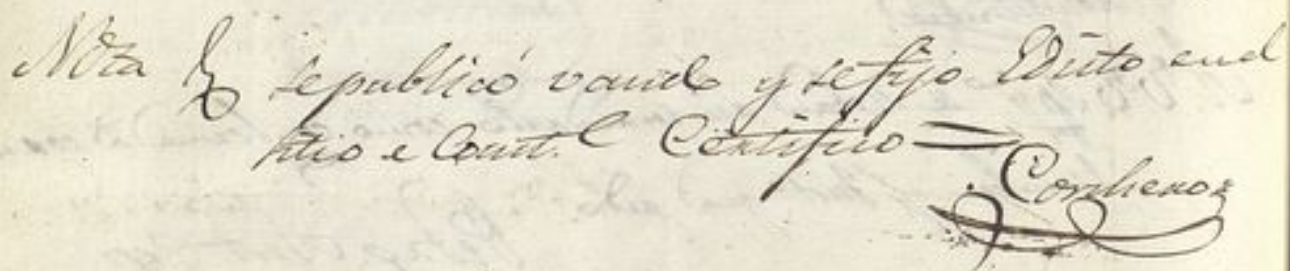 Nota se publicó vando y se fijo Edicto en el
sitio e Cost.e Certifico =